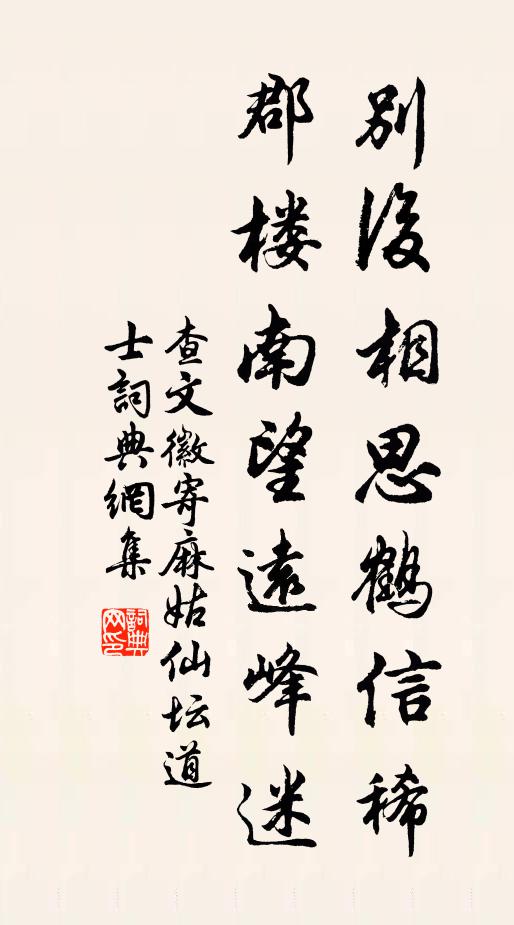 別後相思鶴信稀
郡楼南望遠峰迷
查文徽寄麻姑仙坛道
士詞典網集
詞典
网印